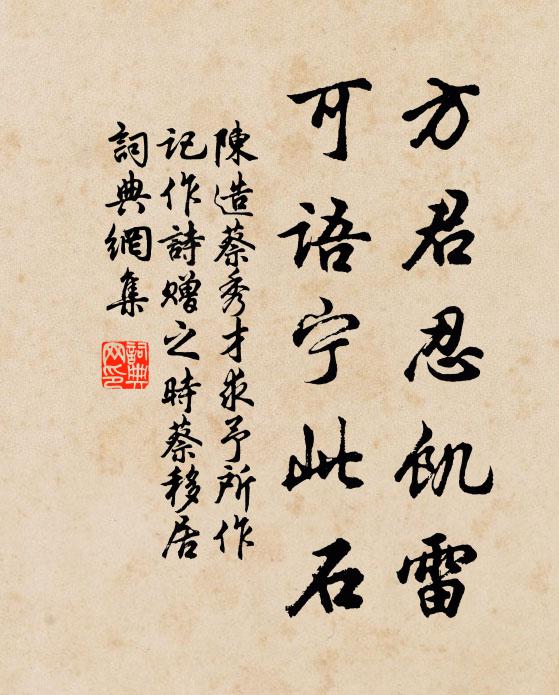 方君忍飢雷
可語宁此石
陳造蔡秀才求予所作
記作詩赠之時蔡移居
詞典網集
詞典
网印